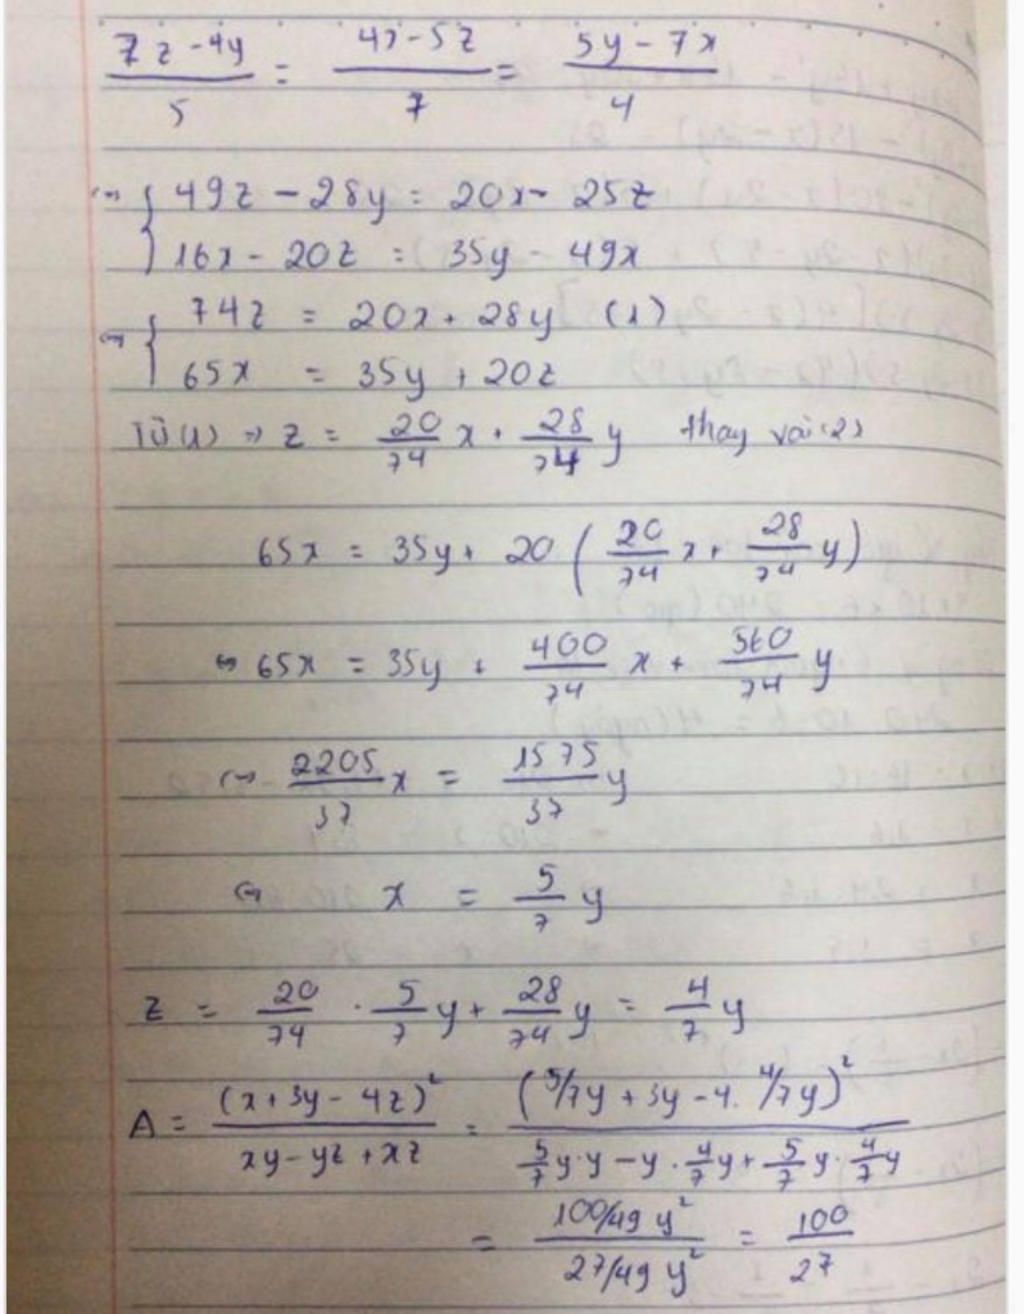 (7z - 4y)/5 = (4x - 5z)/7 = (5y - 7x)/4
⇔ { 49z - 28y = 20x - 25z
16x - 20z = 35y - 49x
⇔ { 74z = 20x + 28y (1)
65x = 35y + 20z
Từ (1) ⇒ z = 20/74 x + 28/74 y thay vào (2)
65x = 35y + 20 (20/74 x + 28/74 y)
⇔ 65x = 35y + 400/74 x + 560/74 y
⇔ 2205/37 x = 1575/37 y
⇔ x = 5/7 y
z = 20/74 · 5/7 y + 28/74 y = 4/7 y
A = (x + 3y - 4z)²/(xy - yz + xz) = (5/7y + 3y - 4. 4/7y)²/(5/7 y·y - y · 4/7 y + 5/7 y · 4/7 y)
= (100/49 y²)/(27/49 y²) = 100/27